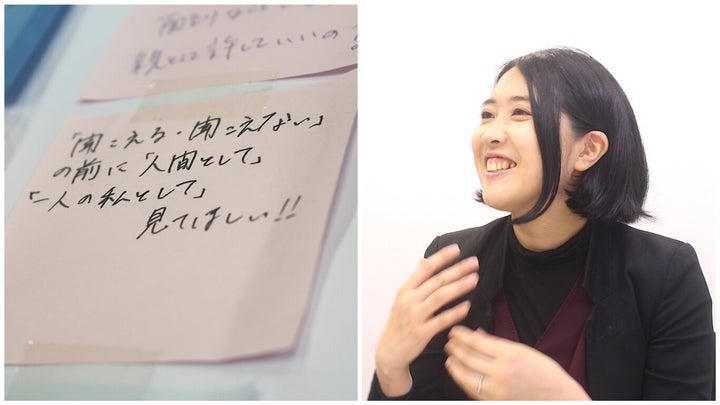 親として許していいの?
「聞こえる・聞こえない」
の前に「人間として」
「一人の私として」
見てほしい!!